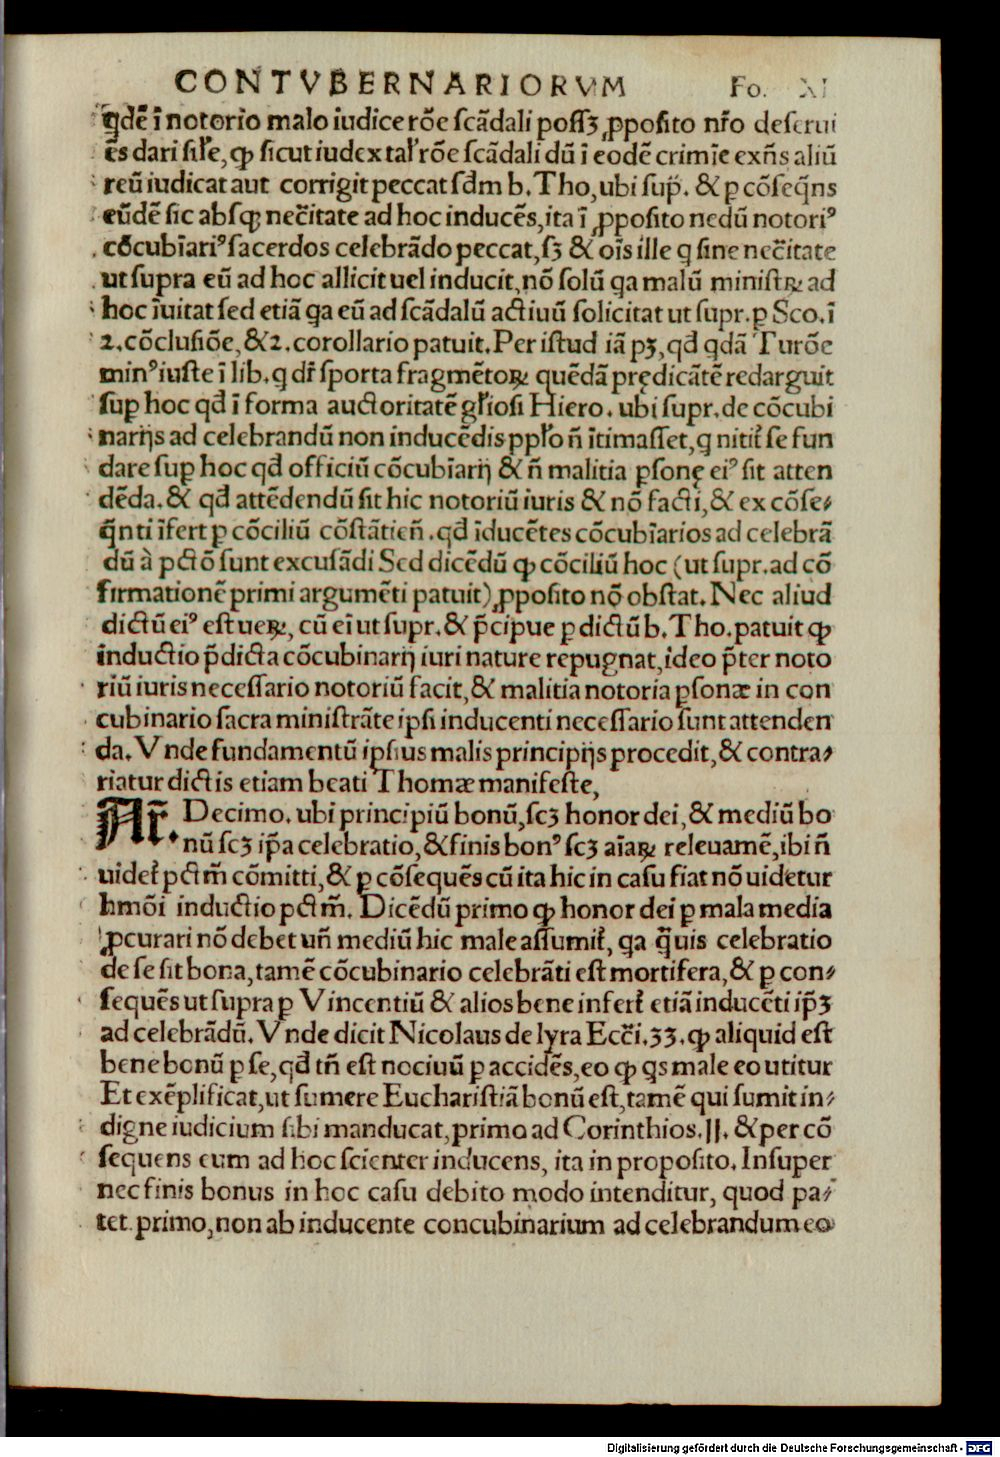 CONTVBERNARIORVM Fo. XI
q̃dẽ ĩ notorio malo iudice rõe ſcãdali poſſꝫ ꝓpoſito nr̃o deſerui
ẽs dari ſil̃e, ꝙ ſicut iudex tal̃ rõe ſcãdali dũ ĩ eodẽ crimĩe exñs aliũ
reũ iudicat aut corrigit peccat ſcd̃m b. Tho, ubi ſup̃. & ꝑ cõſeq̃ns
eũdẽ ſic abſqꝫ nec̃itate ad hoc inducẽs, ita ĩ ꝓpoſito nedũ notoriꝰ
cõcubĩariꝰ ſacerdos celebrãdo peccat, ſꝫ & oĩs ille q ſine nec̃itate
ut ſupra eũ ad hoc allicit uel inducit, nõ ſolũ qa malũ miniſtꝝ ad
hoc ĩuitat ſed etiã qa eũ ad ſcãdalũ actiuũ ſolicitat ut ſupr. ꝑ Sco. ĩ
2. cõcluſiõe, & 2. corollario patuit. Per iſtud iã pꝫ, qd̃ qdã Turõe
minꝰ iuſte ĩ lib. q dr̃ ſporta fragmẽtoꝝ quẽdã prędicãtẽ redarguit
ſup hoc qd̃ ĩ forma auctoritatẽ gl̃ioſi Hiero. ubi ſupr. de cõcubi
narijs ad celebrandũ non inducẽdis ppl̃o ñ ĩtimaſſet, q nitit̃ ſe fun
dare ſup hoc qd̃ officiũ cõcubĩarij & ñ malitia ꝑſonę eiꝰ ſit atten
dẽda. & qd̃ attẽdendũ ſit hic notoriũ iuris & nõ facti, & ex cõſe⸗
q̃nti ĩfert ꝑ cõciliũ cõſtãtieñ. qd̃ ĩducẽtes cõcubĩarios ad celebrã
dũ à pctõ ſunt excuſãdi Sed dicẽdũ ꝙ cõciliũ hoc (ut ſupr. ad cõ
firmationẽ primi argumẽti patuit) ꝓpoſito nõ obſtat. Nec aliud
dictũ eiꝰ eſt ueꝝ, cũ eĩ ut ſupr. & p̃cipue ꝑ dictũ b. Tho. patuit ꝙ
inductio p̃dicta cõcubinarij iuri nature repugnat, ideo p̃ter noto
riũ iuris neceſſario notoriũ facit, & malitia notoria ꝑſonæ in con
cubinario ſacra miniſtrãte ipſi inducenti neceſſario ſunt attenden
da. Vnde fundamentũ ipſius malis principijs procedit, & contra⸗
riatur dictis etiam beati Thomæ manifeſte,
Ar̃. Decimo. ubi principiũ bonũ, ſcꝫ honor dei, & mediũ bo
nũ ſcꝫ ip̃a celebratio, & finis bonꝰ ſcꝫ aĩaꝝ releuamẽ, ibi ñ
uidet̃ pctm̃ cõmitti, & ꝑ cõſequẽs cũ ita hic in caſu fiat nõ uidetur
hmõi inductio pctm̃. Dicẽdũ primo ꝙ honor dei ꝑ mala media
ꝓcurari nõ debet uñ mediũ hic male aſſumit̃, qa q̃uis celebratio
de ſe ſit bona, tamẽ cõcubinario celebrãti eſt mortifera, & ꝑ con⸗
ſequẽs ut ſupra ꝑ Vincentiũ & alios bene infert̃ etiã inducẽti ip̃ꝫ
ad celebrãdũ. Vnde dicit Nicolaus de lyra Ecc̃i. 33. ꝙ aliquid eſt
bene bonũ ꝑ ſe, qd̃ tñ eſt nociuũ ꝑ accidẽs, eo ꝙ qs male eo utitur
Et exẽplificat, ut ſumere Euchariſtiã bonũ eſt, tamẽ qui ſumit in⸗
digne iudicium ſibi manducat, primo ad Corinthios. JJ. & per cõ
ſequens eum ad hoc ſcienter inducens, ita in propoſito. Inſuper
nec finis bonus in hoc caſu debito modo intenditur, quod pa⸗
tet primo, non ab inducente concubinarium ad celebrandum eo
Digitalisierung gefördert durch die Deutsche Forschungsgemeinschaft - DFG